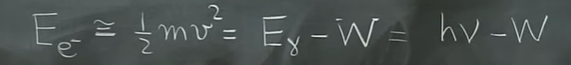 E_e⁻ ≅ ½mv² = E_γ − W = hν − W